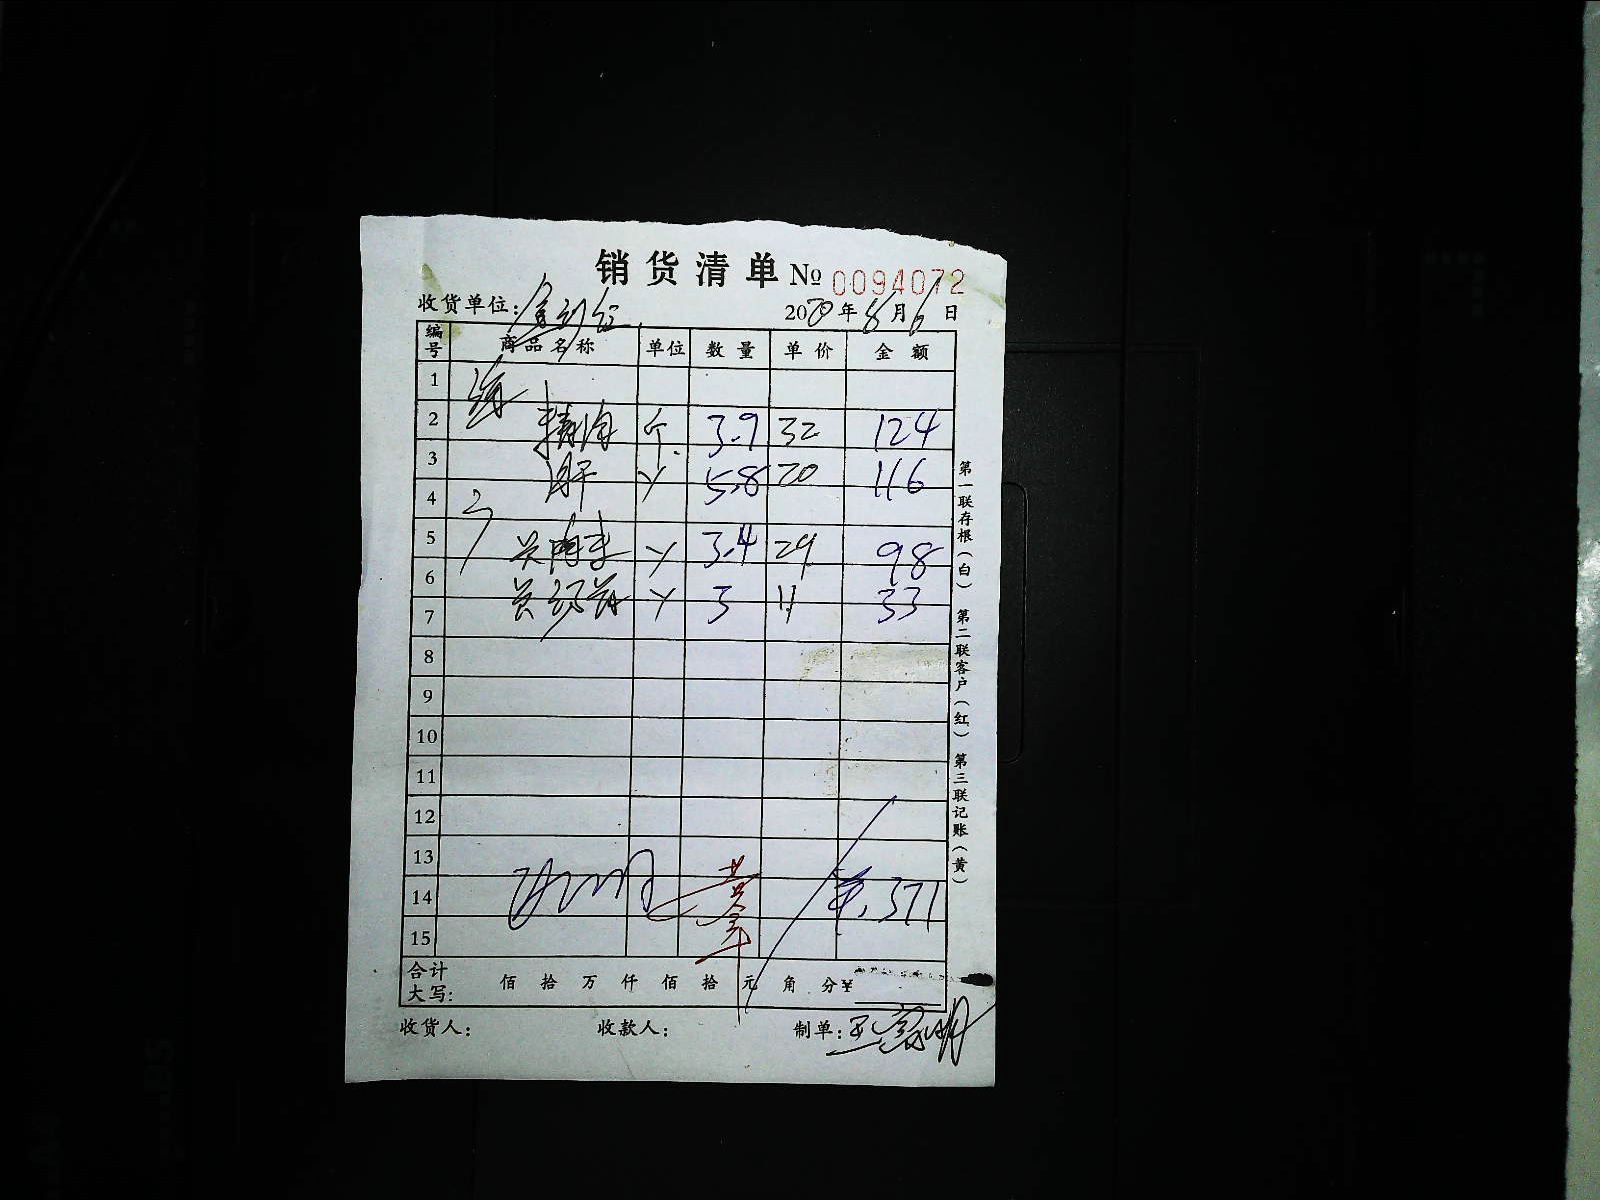 销货清单 № 0094072
收货单位: 2020年8月6日
编号 商品名称 单位 数量 单价 金额
1
2 3.9 32 124
3 5.8 20 116
4
5 3.4 29 98
6 3 11 33
7
8
9
10
11
12
13
14 ¥.371
15
合计大写: 佰 拾 万 仟 佰 拾 元 角 分 ¥
收货人: 收款人: 制单:
第一联存根(白) 第二联客户(红) 第三联记账(黄)